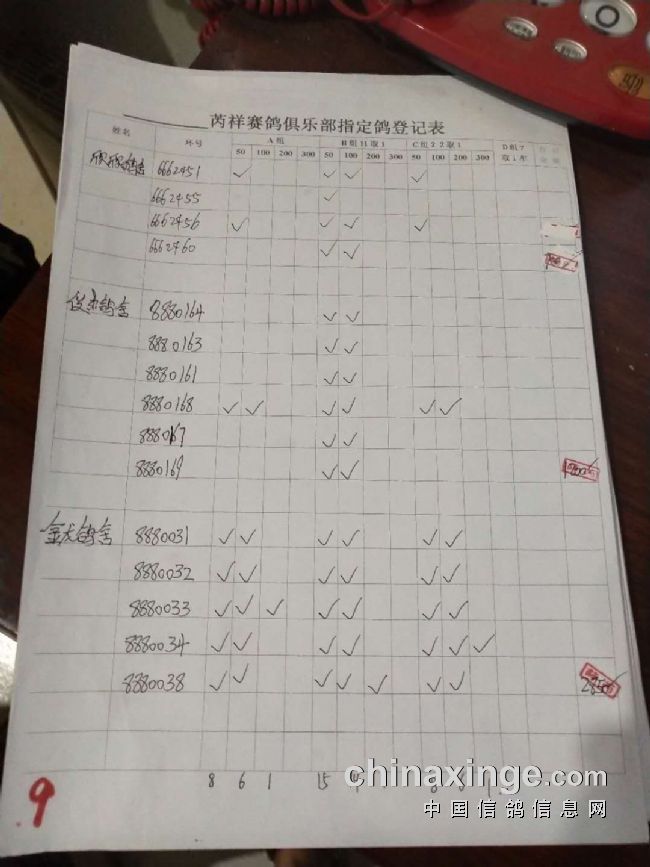 芮祥赛鸽俱乐部指定鸽登记表
姓名 环号 A组 B组11取1 C组22取1 D组7取1车
50 100 200 300 50 100 200 300 50 100 200 300
6662451 ✓ ✓ ✓ ✓
6662455 ✓
6662456 ✓ ✓ ✓ ✓
6662460 ✓ ✓
8880164 ✓ ✓
8880163 ✓ ✓
8880161 ✓ ✓
8880168 ✓ ✓ ✓ ✓ ✓ ✓
8880167 ✓ ✓
8880169 ✓ ✓
金龙鸽舍 8880031 ✓ ✓ ✓ ✓ ✓ ✓
8880032 ✓ ✓ ✓ ✓ ✓ ✓
8880033 ✓ ✓ ✓ ✓ ✓ ✓ ✓
8880034 ✓ ✓ ✓ ✓ ✓ ✓ ✓
8880038 ✓ ✓ ✓ ✓ ✓ ✓ ✓
8 6 1 15
9
chinaxinge.com
中国信鸽信息网